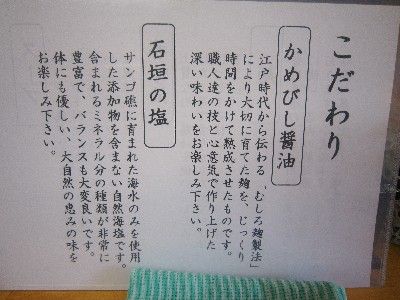 こだわり
かめびし醤油
江戸時代から伝わる、「むしろ麹製法」
により大切に育てた麹を、じっくり
時間をかけて熟成させたものです。
職人達の技と心意気で作り上げた
深い味わいをお楽しみ下さい。
石垣の塩
サンゴ礁に育まれた海水のみを使用
した添加物を含まない自然海塩です。
含まれるミネラル分の種類が非常に
豊富で、バランスも大変良いです。
体にも優しい、大自然の恵みの味を
お楽しみ下さい。